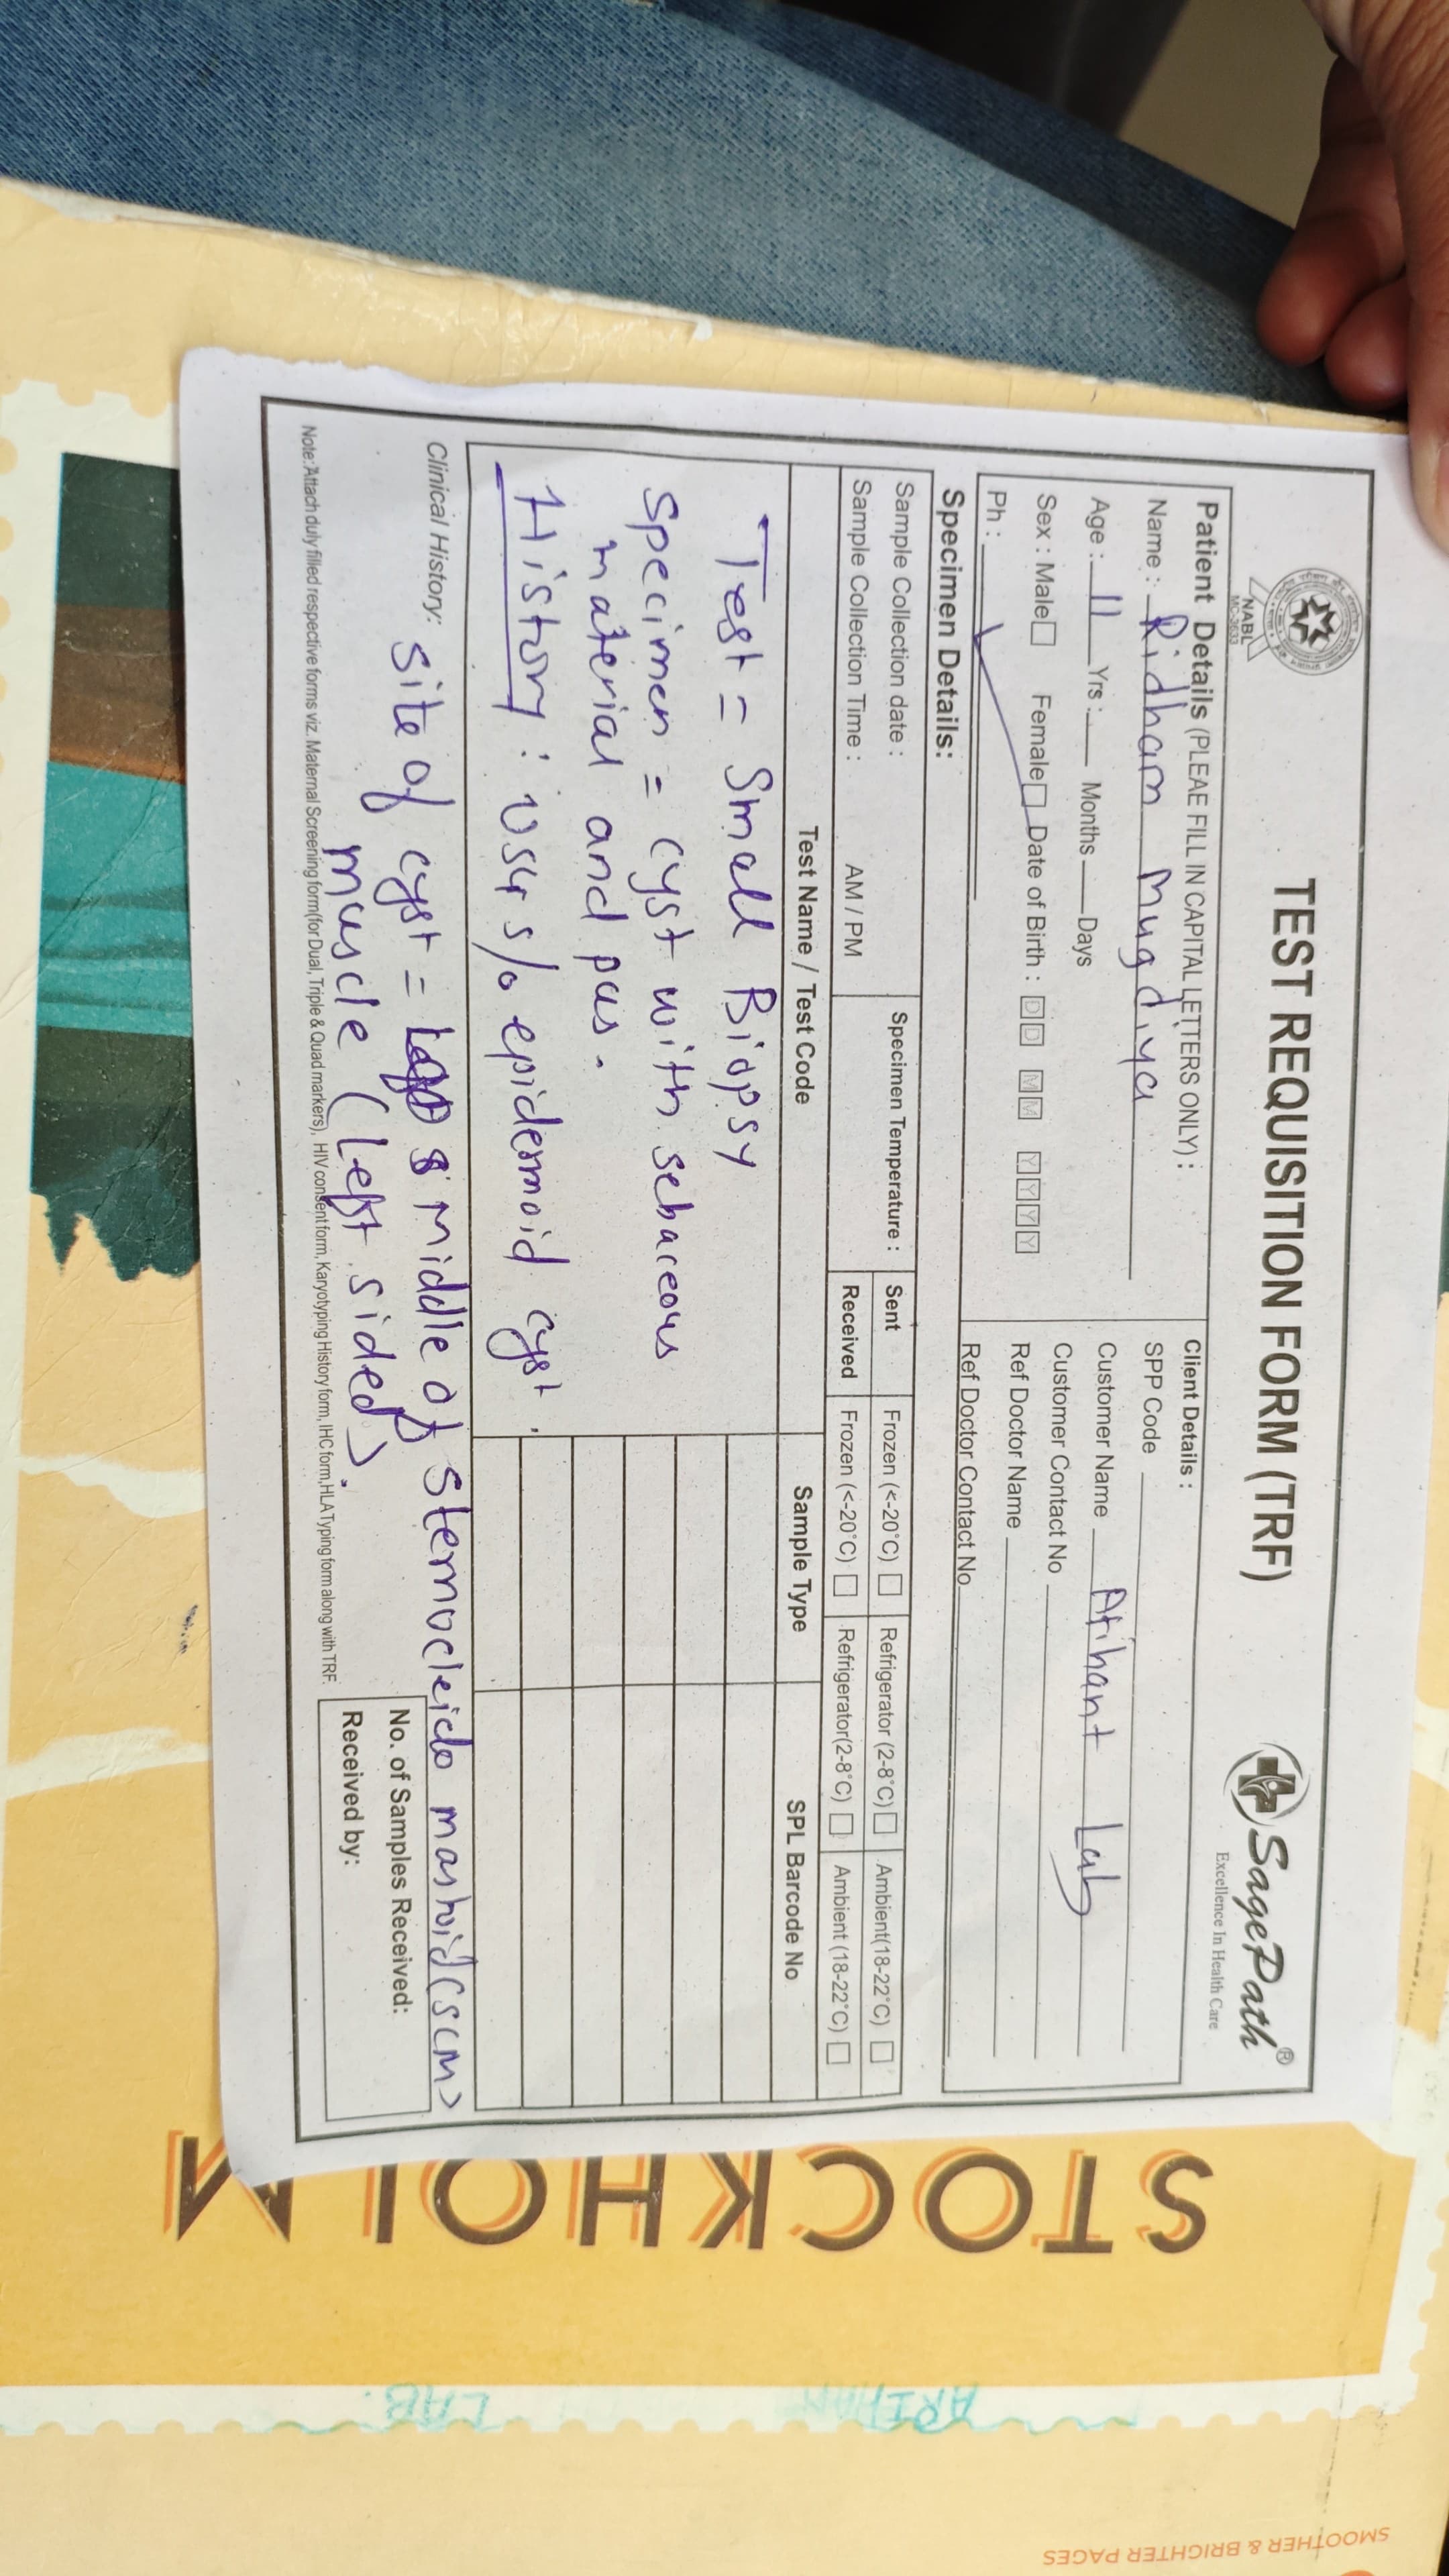 TEST REQUISITION FORM (TRF)
NABL
MC-3633
SagePath®
Excellence In Health Care
Patient Details (PLEAE FILL IN CAPITAL LETTERS ONLY) :
Name : Ridham Mugdiya
Age : 11 Yrs : Months Days
Sex : Male Female Date of Birth : D D M M Y Y Y Y
Ph :
Client Details :
SPP Code
Customer Name Arihant Lab
Customer Contact No
Ref Doctor Name
Ref Doctor Contact No
Specimen Details:
Sample Collection date :
Sample Collection Time : AM / PM
Specimen Temperature :
Sent Frozen (<-20°C) Refrigerator (2-8°C) Ambient(18-22°C)
Received Frozen (<-20°C) Refrigerator(2-8°C) Ambient (18-22°C)
Test Name / Test Code Sample Type SPL Barcode No
Test = Small Biopsy
Specimen = cyst with sebaceous
material and pus.
History : USG s/o epidermoid cyst.
Clinical History: site of cyst = middle of sternocleido mastoid (SCM)
muscle (left sided).
No. of Samples Received:
Received by:
Note: Attach duly filled respective forms viz. Maternal Screening form(for Dual, Triple & Quad markers), HIV consent form, Karyotyping History form, IHC form,HLA Typing form along with TRF.
STOCKHOLM
ARIHANT LAB.
SMOOTHER & BRIGHTER PAGES